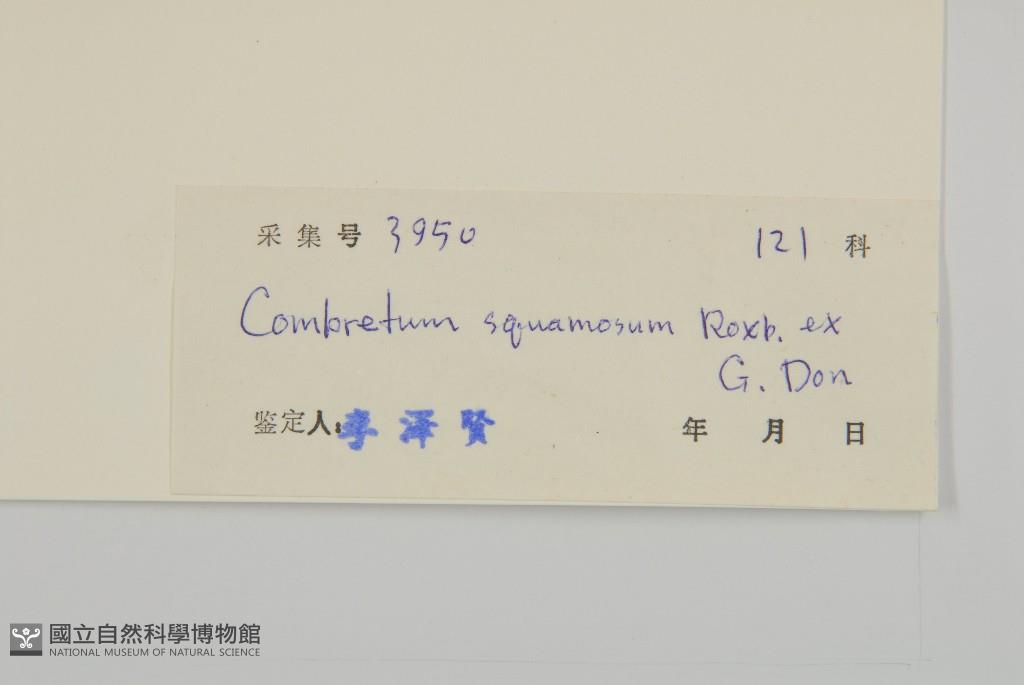 采集号 3950 121 科
Combretum squamosum Roxb. ex
G. Don
鉴定人: 李泽贤 年 月 日
國立自然科學博物館
NATIONAL MUSEUM OF NATURAL SCIENCE